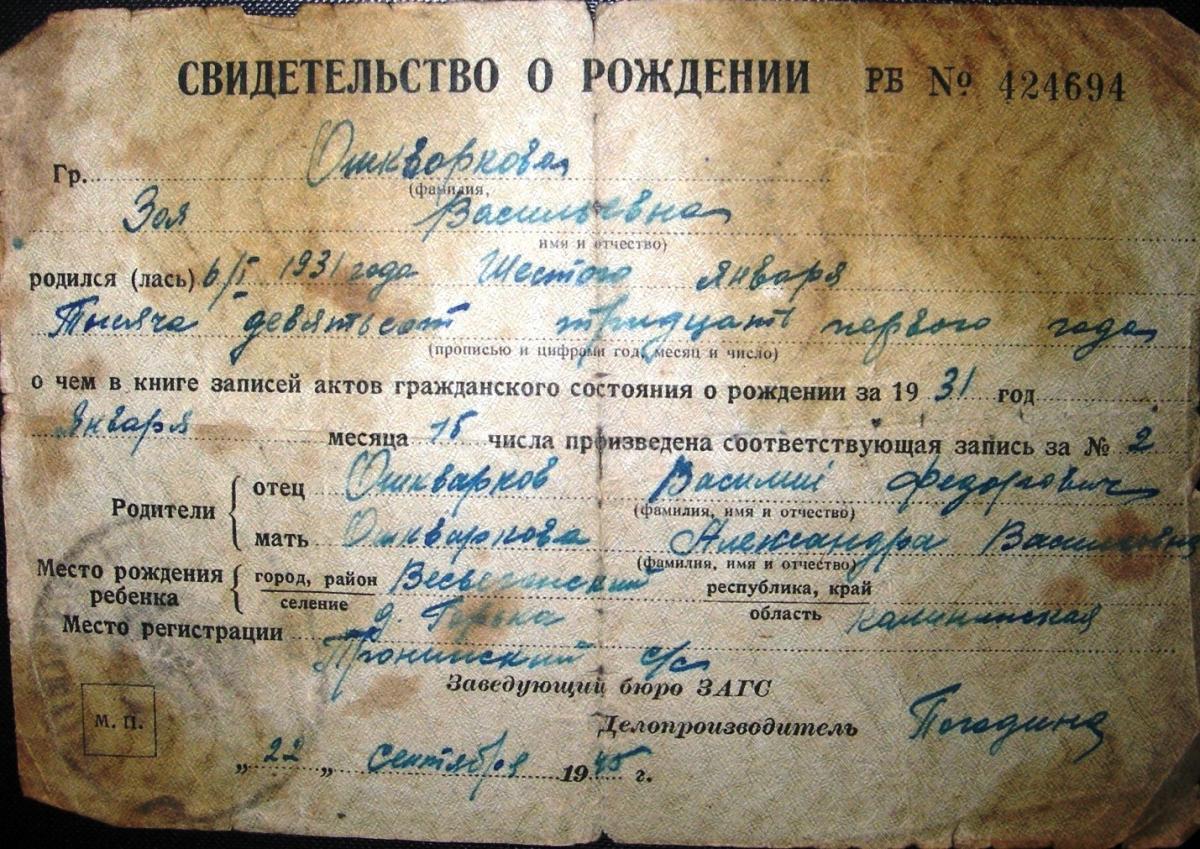 СВИДЕТЕЛЬСТВО О РОЖДЕНИИ РБ № 424694
Гр. Ошкваркова
(фамилия,
Зоя Васильевна
имя и отчество)
родился (лась) 6/I 1931 года Шестого января
Тысяча девятьсот тридцать первого года
(прописью и цифрами год, месяц и число)
о чем в книге записей актов гражданского состояния о рождении за 1931 год
Января месяца 15 числа произведена соответствующая запись за № 2
Родители
отец Ошкварков Василий Федорович
(фамилия, имя и отчество)
мать Ошкваркова Александра Васильевна
(фамилия, имя и отчество)
Место рождения ребенка
город, район Весьегонский республика, край
селение д. Горка область Калининская
Место регистрации
Тронинский с/с
Заведующий бюро ЗАГС
Делопроизводитель Погодина
М. П.
„ 22 „ сентября 1945 г.